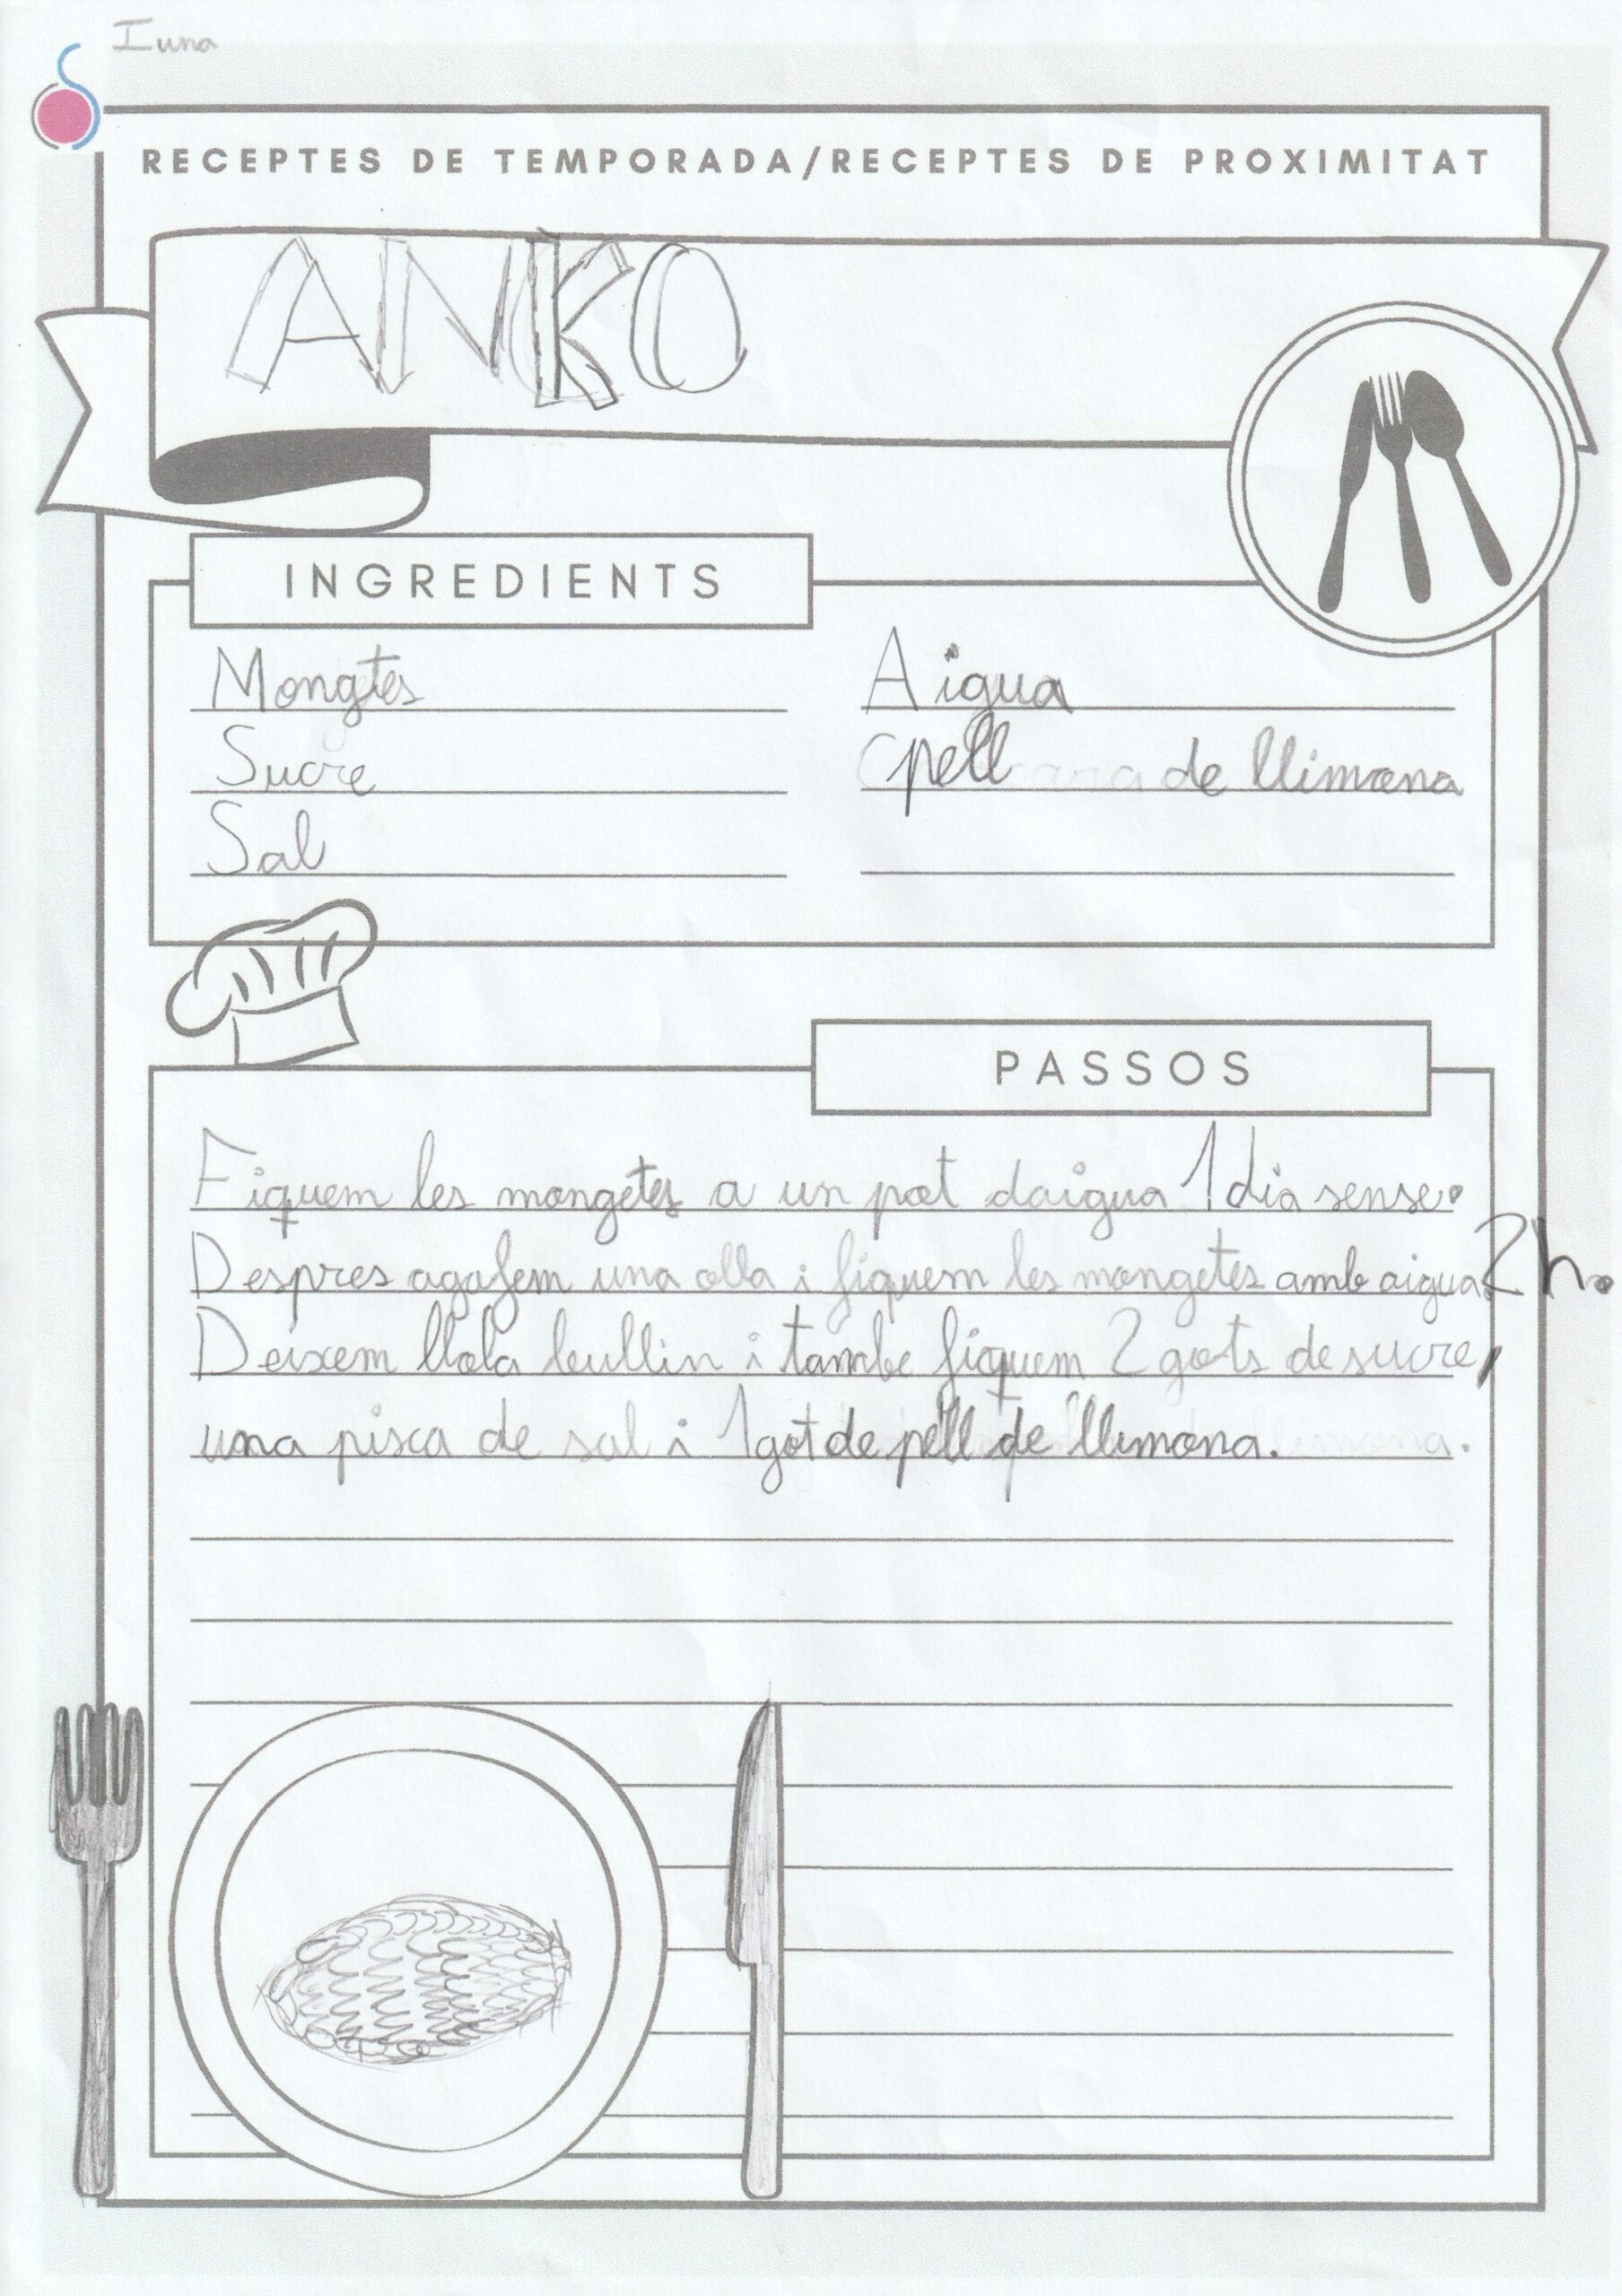 Iuna
RECEPTES DE TEMPORADA/RECEPTES DE PROXIMITAT
ANKO
INGREDIENTS
Mongtes
Sucre
Sal
Aigua
pell de llimona
PASSOS
Fiquem les mongetes a un pot daigua 1 dia sense.
Despres agafem una olla i fiquem les mongetes amb aigua 2h.
Deixem llola bullin i tambe fiquem 2 gots de sucre,
una pisca de sal i 1 got de pell de llimona.